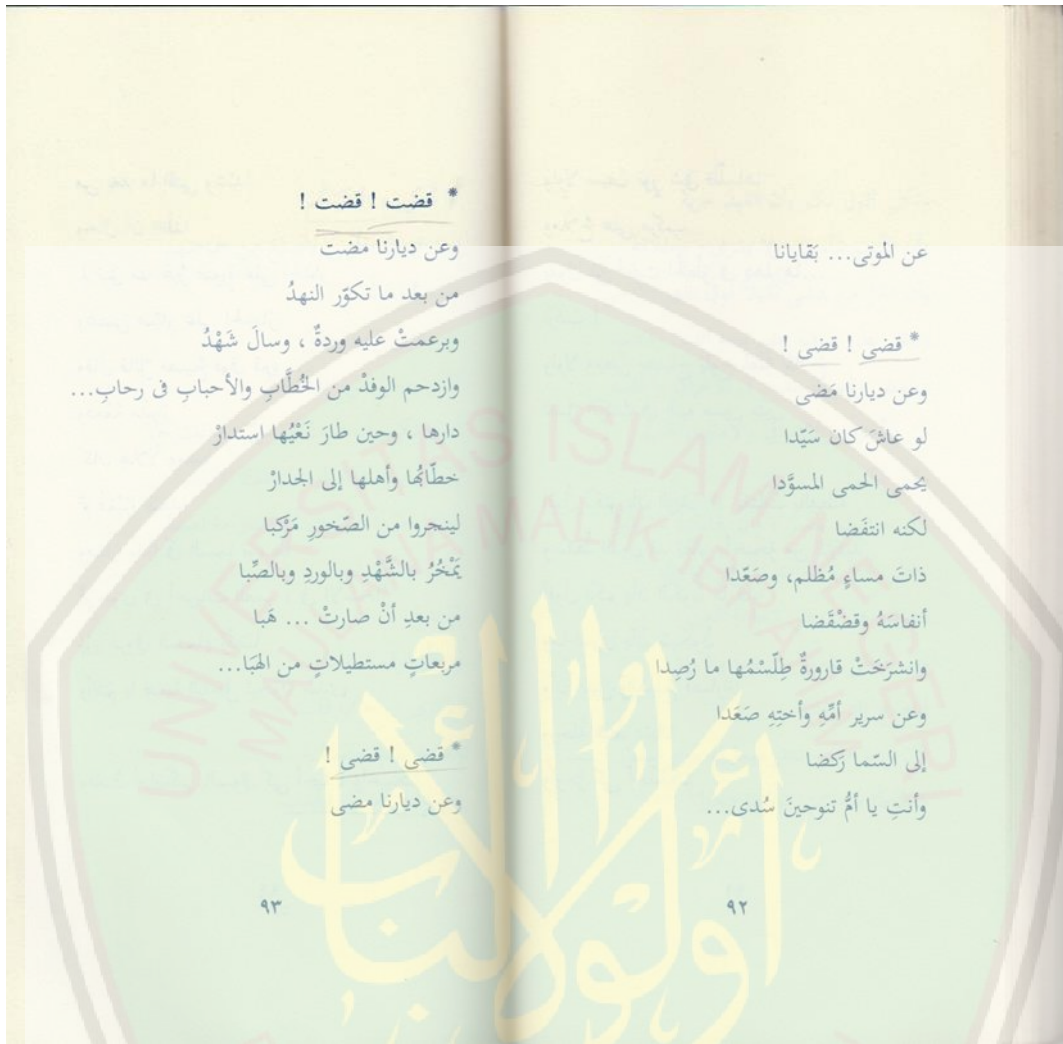 عن الموتى... بَقايانا
* قضى ! قضى !
وعن ديارنا مَضى
لو عاشَ كان سَيّدا
يحمى الحمى المسوَّدا
لكنه انتفَضا
ذاتَ مساءٍ مُظلم، وصَعّدا
أنفاسَهُ وقضْقَضا
وانشرَخَتْ قارورةٌ طِلّسْمُها ما رُصِدا
وعن سرير أمِّهِ وأختِهِ صَعَدا
إلى السّما رَكضا
وأنتِ يا أمُّ تنوحينَ سُدى...
٩٢
* قضت ! قضت !
وعن ديارنا مضت
من بعد ما تكوّر النهدُ
وبرعمتْ عليه وردةٌ ، وسالَ شَهْدُ
وازدحم الوفدْ من الخُطَّابِ والأحبابِ فى رحابِ...
دارها ، وحين طارَ نَعْيُها استدارْ
خطّابُها وأهلها إلى الجدارْ
لينجروا من الصّخورِ مَرْكبا
يَمْخُرُ بالشَّهْدِ وبالوردِ وبالصِّبا
من بعدِ أنْ صارتْ ... هَبا
مربعاتٍ مستطيلاتٍ من الهَبَا...
* قضى ! قضى !
وعن ديارنا مضى
٩٣
UNIVERSITAS ISLAM NEGERI
MAULANA MALIK IBRAHIM
أولو الألباب